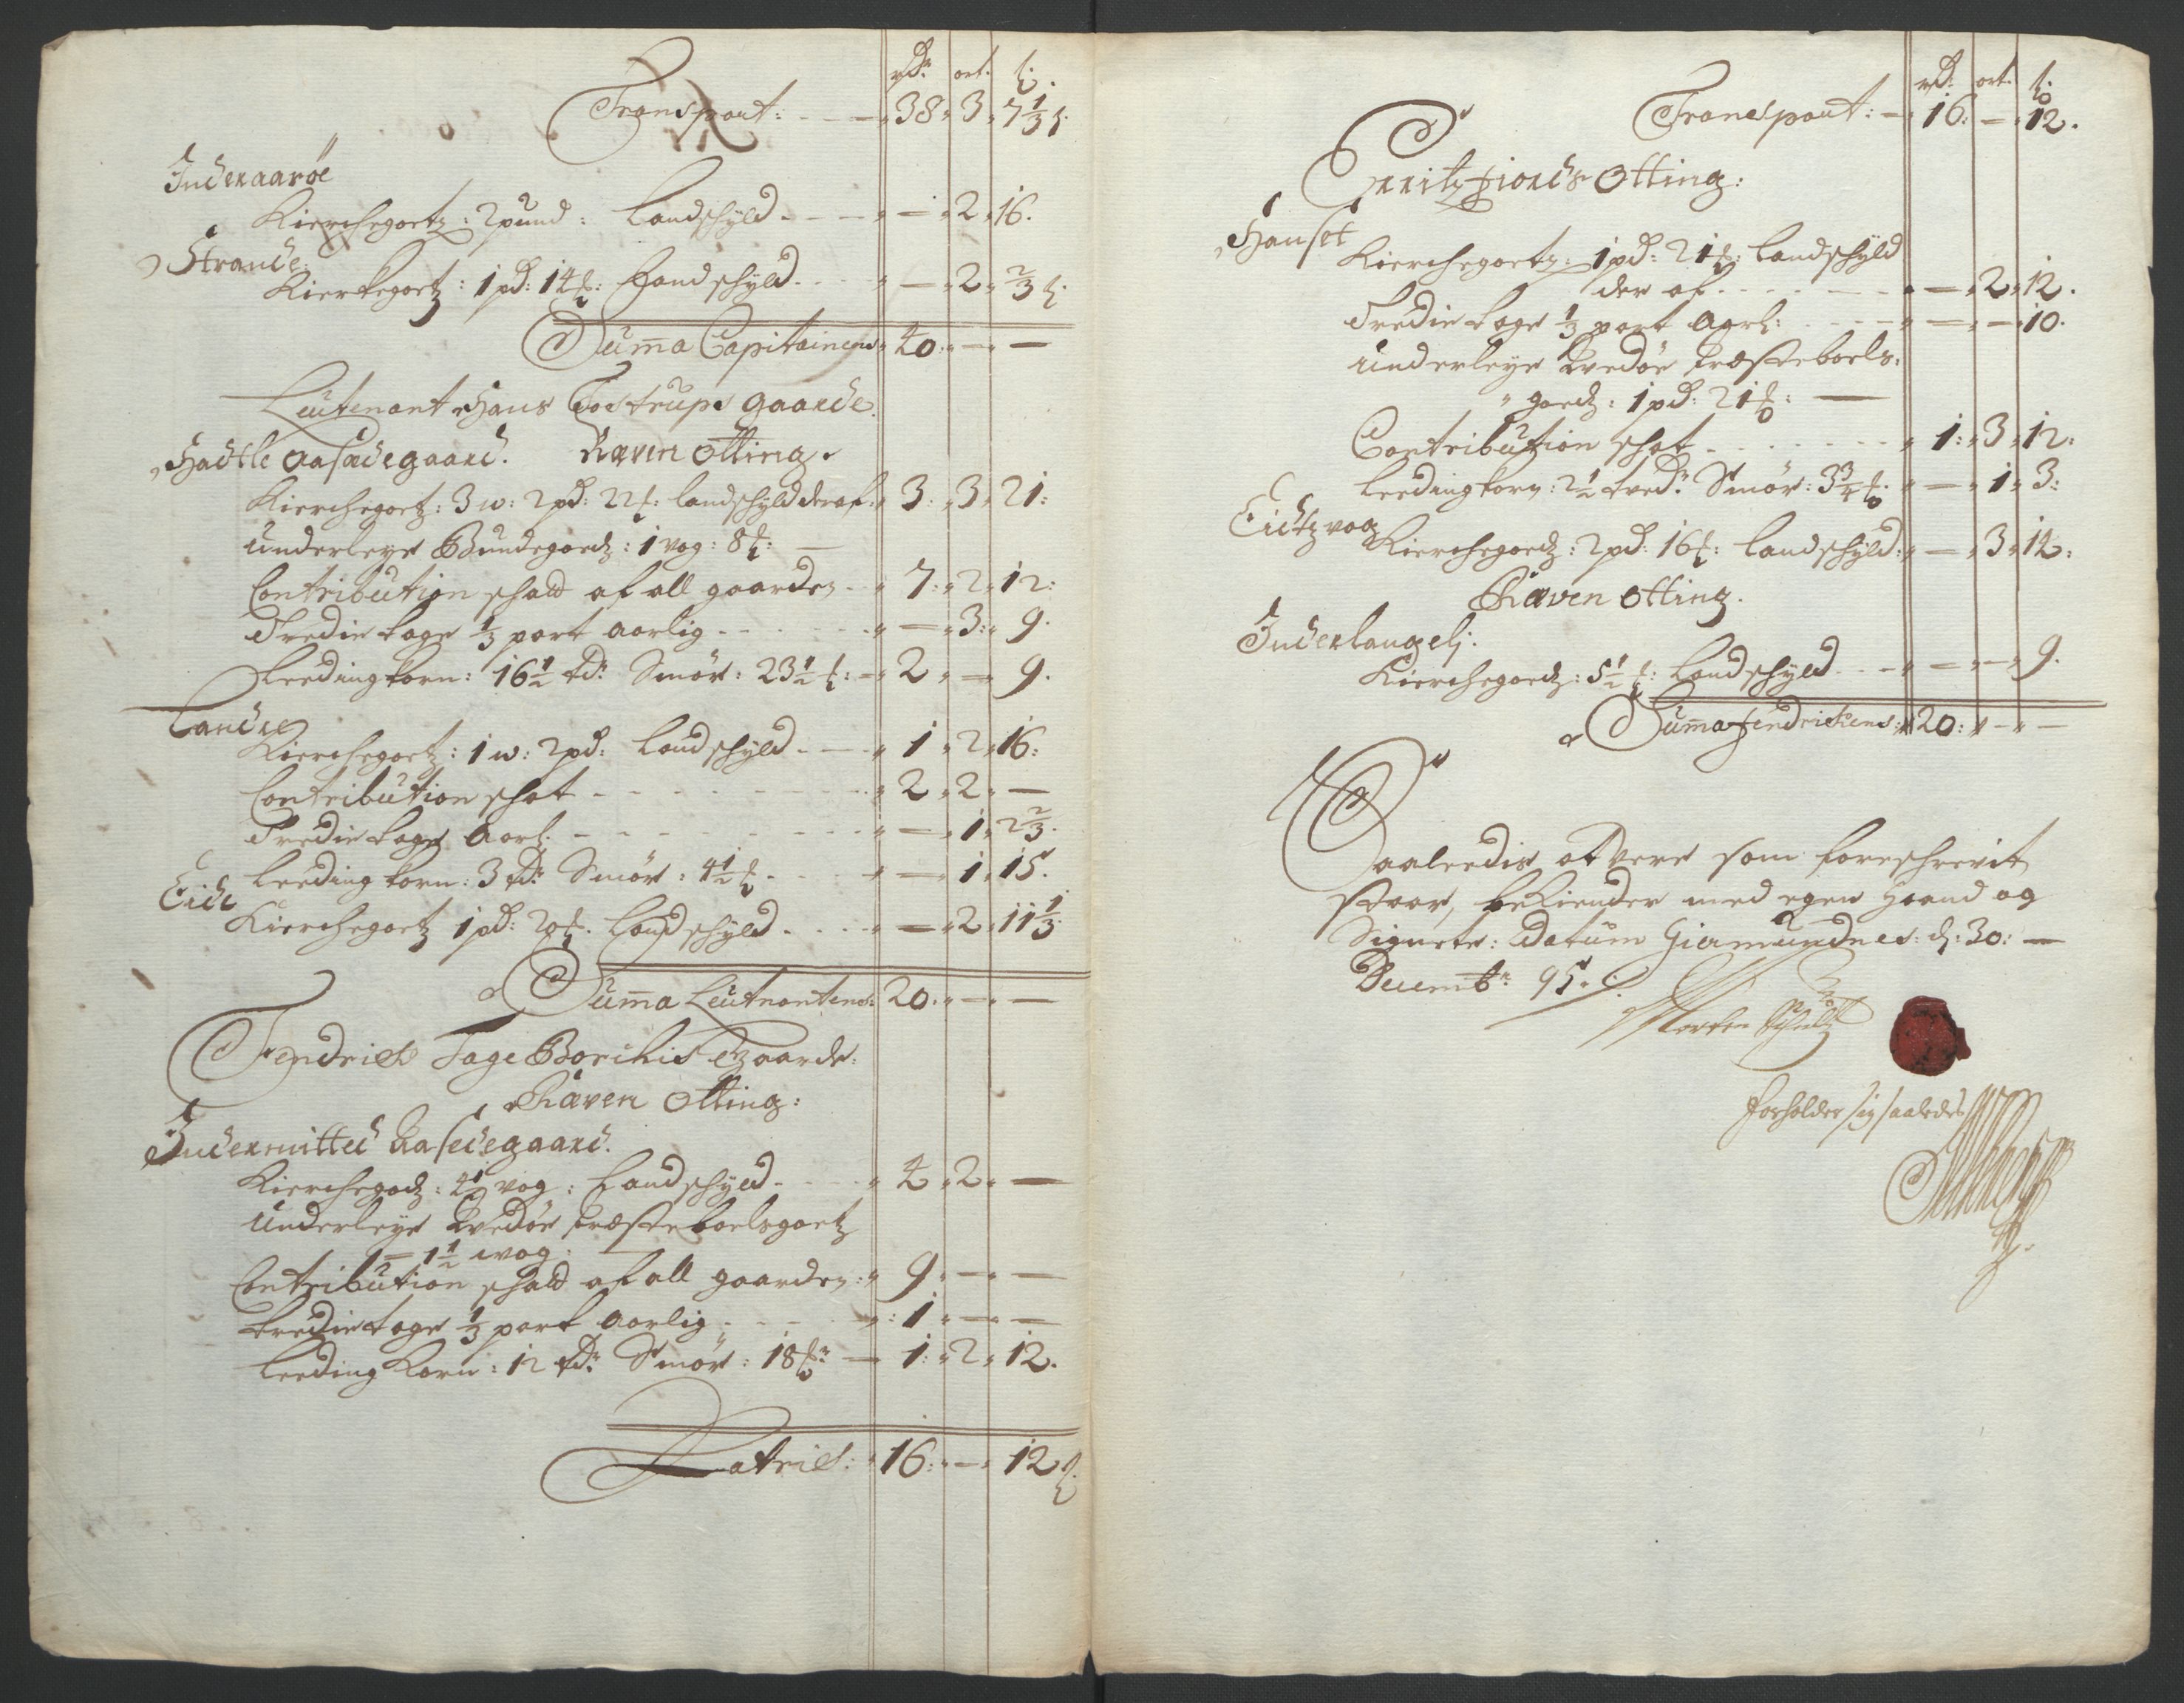 rdr. ort. ß.
Transport: - - - 38. 3. 7 1/3 ß.
Inderaarøe
Kierchegoetz: 2 pund: Landschyld - - - — 2. 16.
Strande:
Kierkegoetz: 1 pd: 14 ℔: Landschyld - - - — 2. 2/3 ß.
Summa Capitainens 40. — —
Leutenant Hans Tostrups gaarde.
Hadtle aasædegaard. Raven Otting.
Kierchegoetz: 3 w: 2 pd: 22 ℔: landschyld deraf: 3. 3. 21:
Underleye Bundegoedz: 1 vog: 8 ℔: —
Contribution schatt af all gaarden - 7: 2. 12:
Tredie tage 1/3 part aarlig - - - — 3. 9.
Leedingkorn: 16 1/2 td: Smør: 23 1/2 ℔: - 2. — 9.
Landre
Kierchegoetz: 1 w: 2 pd: Landschyld - - - 1. 2. 16:
Contribution schat - - - 2. 2. —
Tredie tage aarl. - - - — 1. 2 2/3.
Leeding korn: 3 td: Smør: 4 1/2 ℔ - - — 1. 15.
Eide
Kierchegoetz 1 pd: 20 ℔. Landschyld - - - — 2. 11 1/3.
Summa Leutnantens: 20. — —
Fendrich Tage Borchis gaarde:
Raven Otting:
Indermitted Aasedegaard.
Kierchegodz: 4 1/2 vog: Landschyld - - - 4. 2. —
Underleye Qvedøe Præsteboelsgoetz
= 1 1/2 wog:
Contribution schatt af all gaarden: 9. — —
tredie tage 1/3 part Aarlig - - - 1. — —
Leeding Korn: 12 td: Smør: 18 ℔: — 1: 2. 12.
Latriel: 16: — 12 ß.
rd: ort. ß.
Transport: — 16: — 12.
Otting:
Hanset
Kierchegoetz: 1 pd: 21 ℔: Landschyld
der af - - - — 2. 12.
Tredie tage 1/3 part Aarl: - - - — — 10.
Underleye Qvedøe Præsteboels:
goedz: 1 pd: 21 ℔: —
Contribution schat - - - 1: 3. 12:
Leedingkorn: 2 1/2 td: Smør: 3 3/4 ℔. — 1. 3:
Eidtzvog
Kierchegoedz: 2 pd: 16 ℔: Landschyld: — 3. 14:
Raven Otting.
Inderlangelj:
Kierchegoedz: 5 1/2 ℔: Landschyld - - - — — 9.
Summa Fendrichens: 20: — —
Saaleedis at vere som foreschrevit
staar, bekiender med egen Haand og
Signete: Datum Giermundnes: d: 30: —
Decembr: 95.
Morten Schultz
forholder sig saaledes